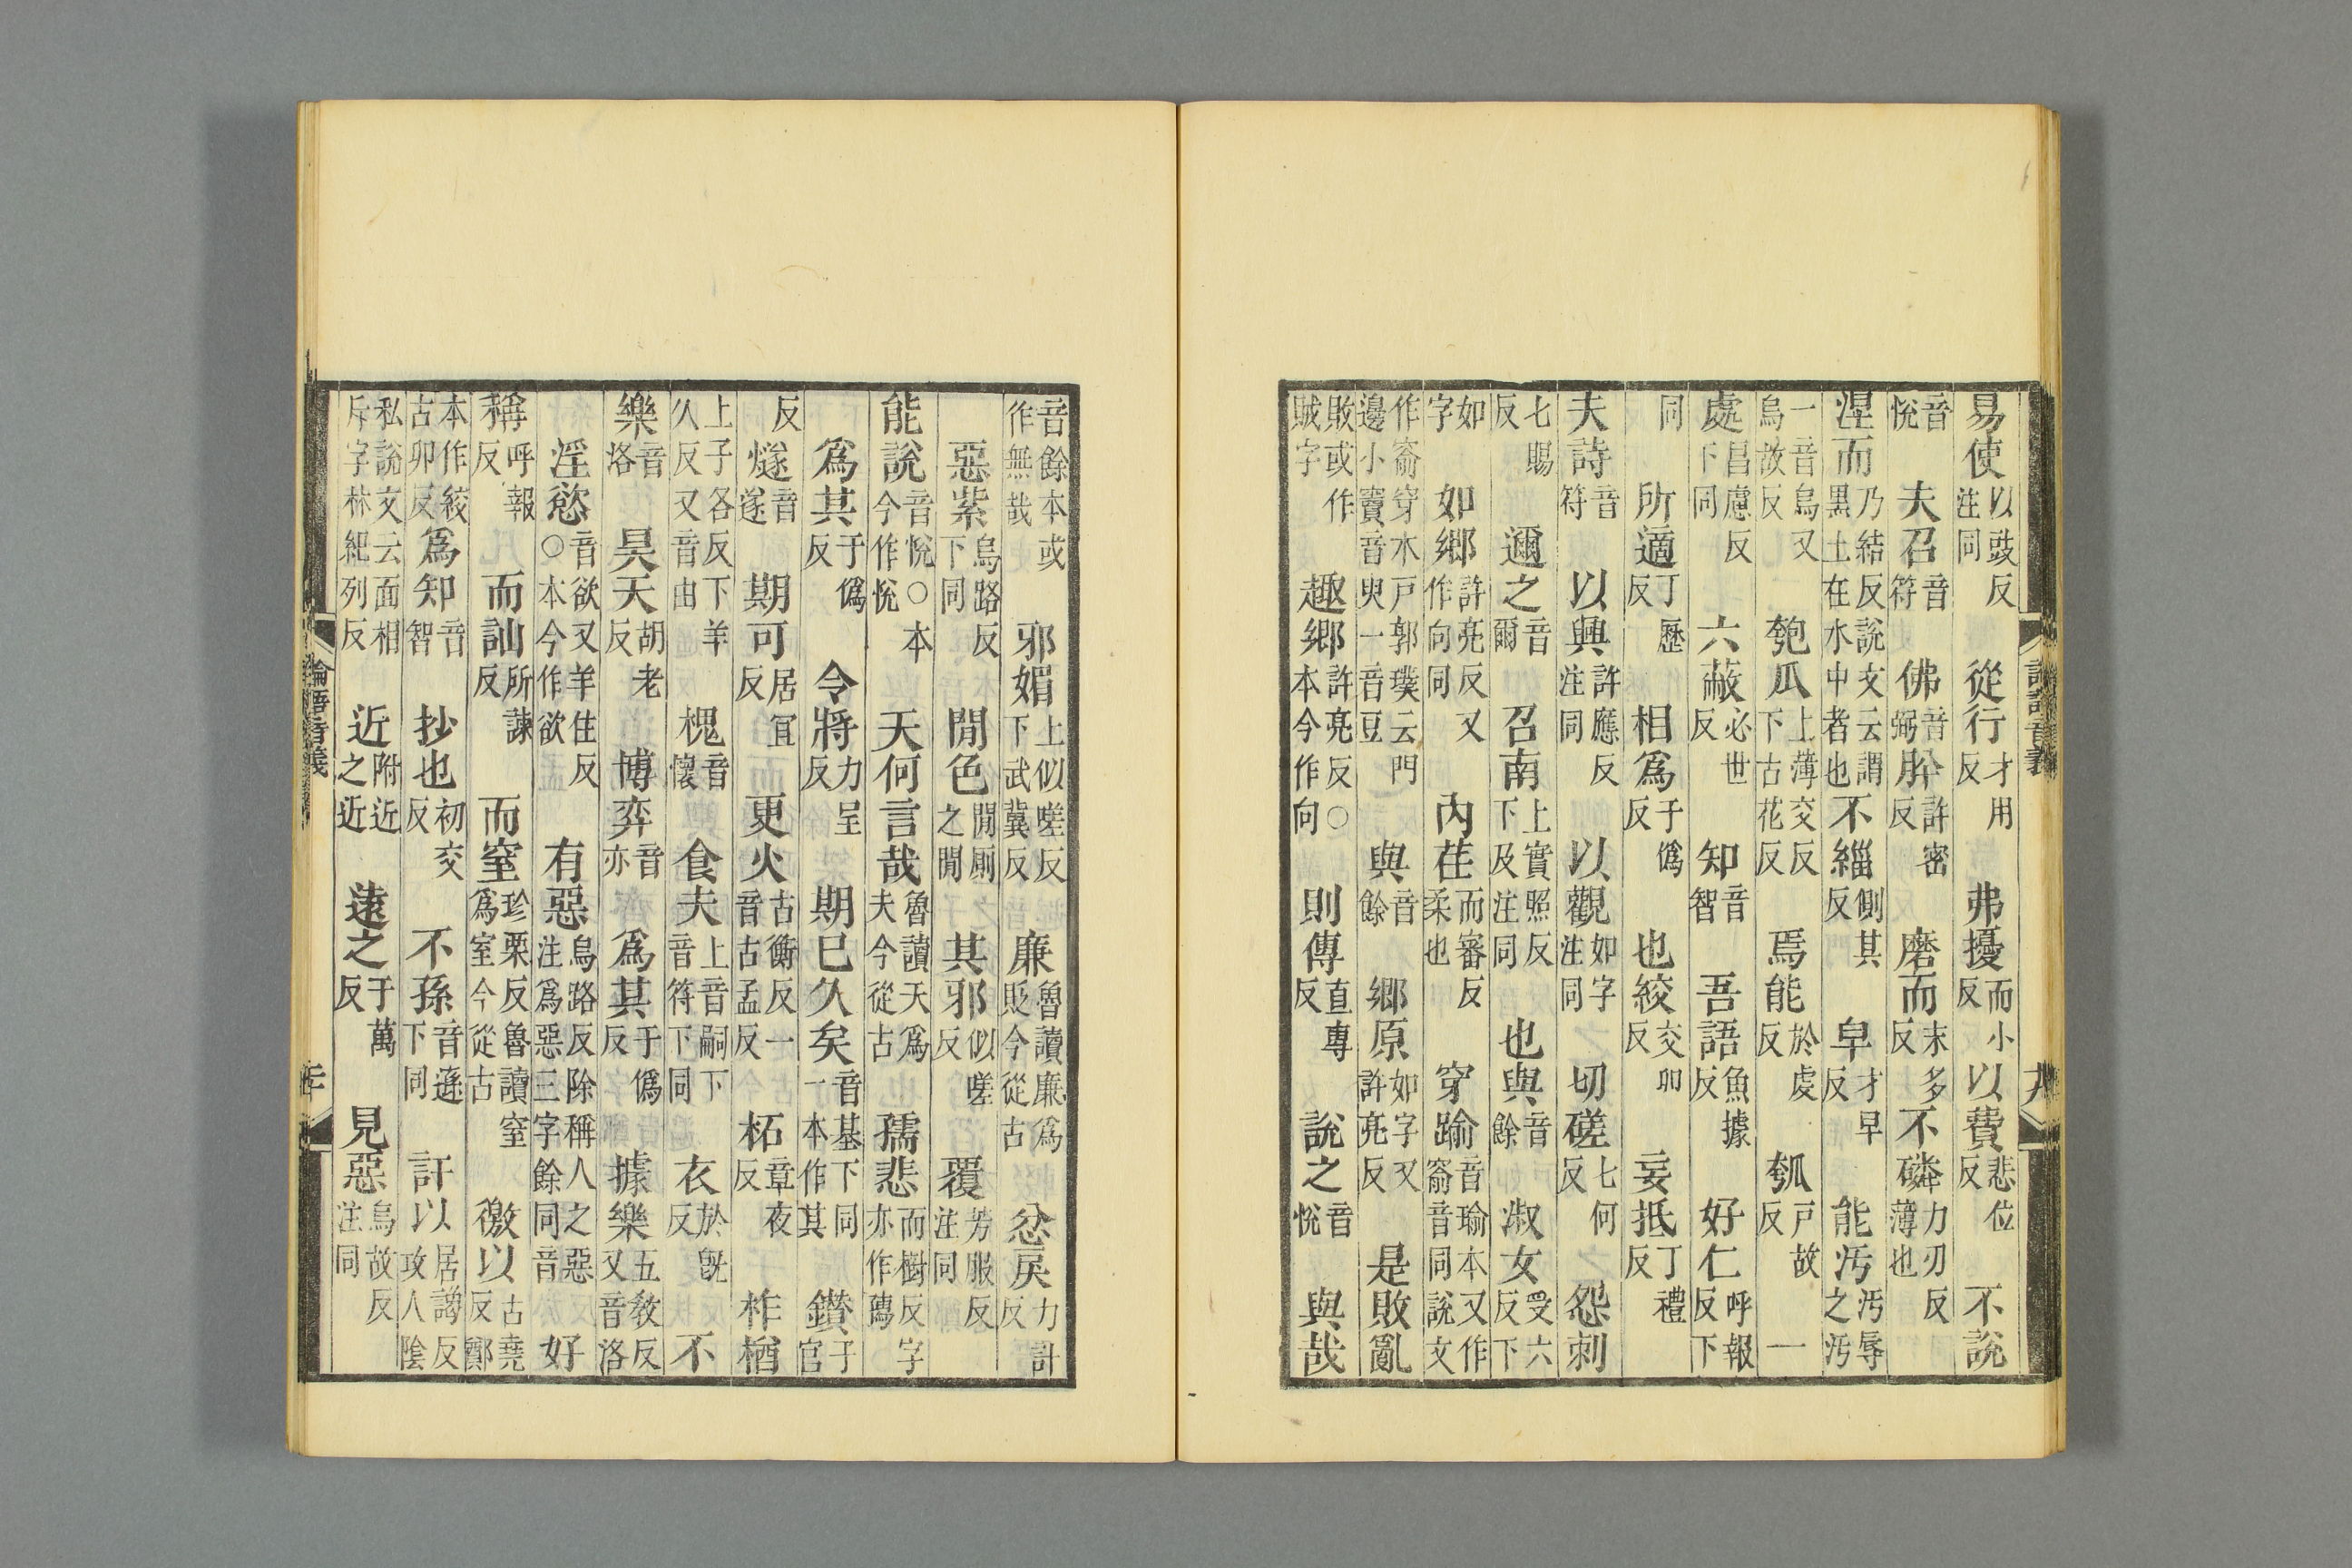 易使以豉反注同從行才用反弗擾而小反以費悲位反不說
音悅夫召音符佛音弼肸許密反磨而末多反不磷力刃反薄也
涅而乃結反說文云謂黑土在水中者也不緇側其反皁才早反能汚汚辱之汚
一音烏又烏故反匏瓜上薄交反下古花反焉能於虔反瓠戸故反一
處昌慮反下同六蔽必世反知音智吾語魚據反好仁呼報反下
同所適丁歷反相爲于僞反也絞交卯反妄抵丁禮反
夫詩音符以興許應反注同以觀如字注同切磋七何反怨刺
七賜反邇之音爾召南上實照反下及注同也與音餘淑女受六反下
如字如鄉許亮反又作向同內荏而審反柔也穿踰音瑜本又作窬音同說文
作窬穿木戸郭璞云門邊小竇音臾一音豆與音餘鄉原如字又許亮反是敗亂
敗或作賊字趣鄉許亮反○本今作向則傳直專反說之音悅與哉
音餘本或作無哉邪媚上似嗟反下武冀反廉魯讀廉爲貶今從古忿戾力計反
惡紫烏路反下同閒色閒厠之閒其邪似嗟反覆芳服反注同
能說音悅○本今作悅天何言哉魯讀天爲夫今從古孺悲而樹反字亦作𡦗
爲其于僞反令將力呈反期巳久矣音基下同一本作其鑚子官
反燧音遂期可居冝反更火古衡反一音古孟反柘章夜反柞楢
上子各反下羊久反又音由槐音懷食夫上音嗣下音符下同衣於旣反不
樂音洛昊天胡老反博弈音亦爲其于僞反據樂五教反又音洛
淫慾音欲又羊住反○本今作欲有惡烏路反除稱人之惡注爲惡三字餘同音好
稱呼報反而訕所諫反而窒珍栗反魯讀窒爲室今從古徼以古堯反鄭
本作絞古卯反爲知音智抄也初交反不孫音遜下同訐以居謁反攻人隂
私說文云面相斥字林紀列反近附近之近遠之于萬反見惡烏故反注同
論語音義